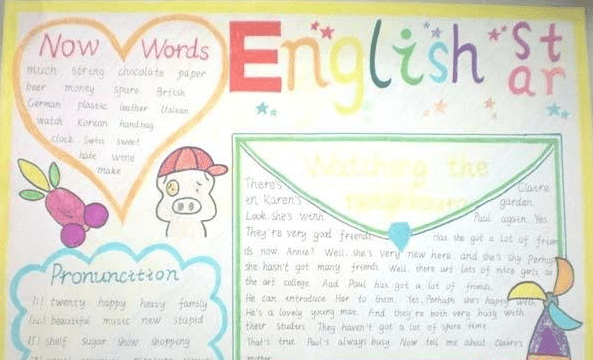 Now Words
much string chocolate paper
beer money spare British
German plastic leather Italian
watch Korean handbag
clock Swiss sweet
hate wine
make
English
St
ar
Watching the
neighbours
There's Claire
in Karen's garden.
Look, she's with Paul again. Yes.
They're very good friends. Has she got a lot of frien
ds now. Annie? Well, she's very new here. and she's shy. Perhaps
she hasn't got many friends. Well, there are lots of nice girls at
the art college. And Paul has got a lot of friends.
He can introduce Her to them. Yes. Perhaps she's happy with
He's a lovely young man. And they're both very busy with
their studies. They haven't got a lot of spare time.
That's true. Paul's always busy. Now tell me about
Pronunciation
twenty happy heavy family
beautiful music new stupid
shelf sugar show shopping